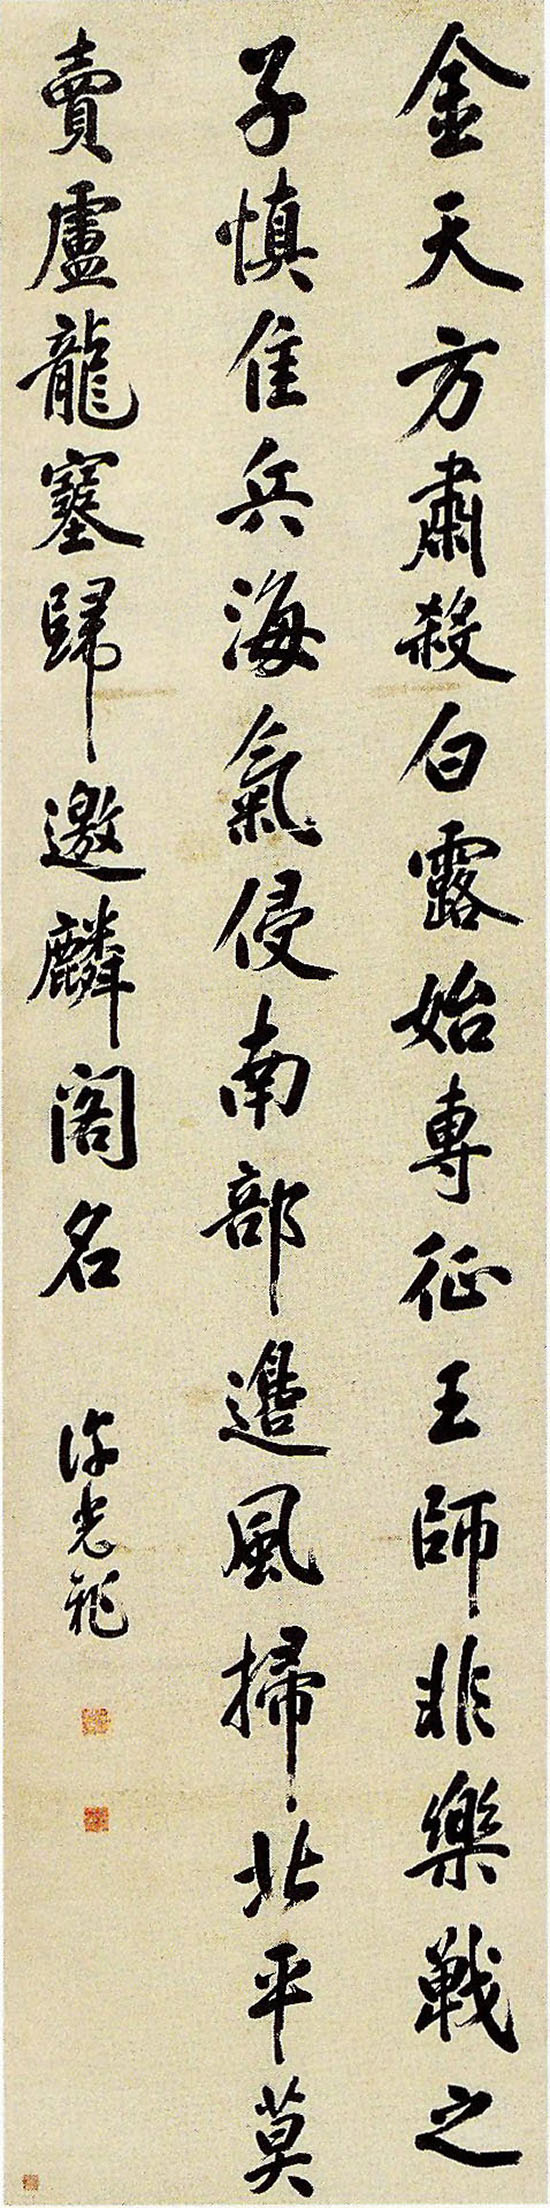 金天方肅殺白露始專征王師非樂戰之
子慎佳兵海氣侵南部邊風掃北平莫
賣盧龍塞歸邀麟閣名 許光祚